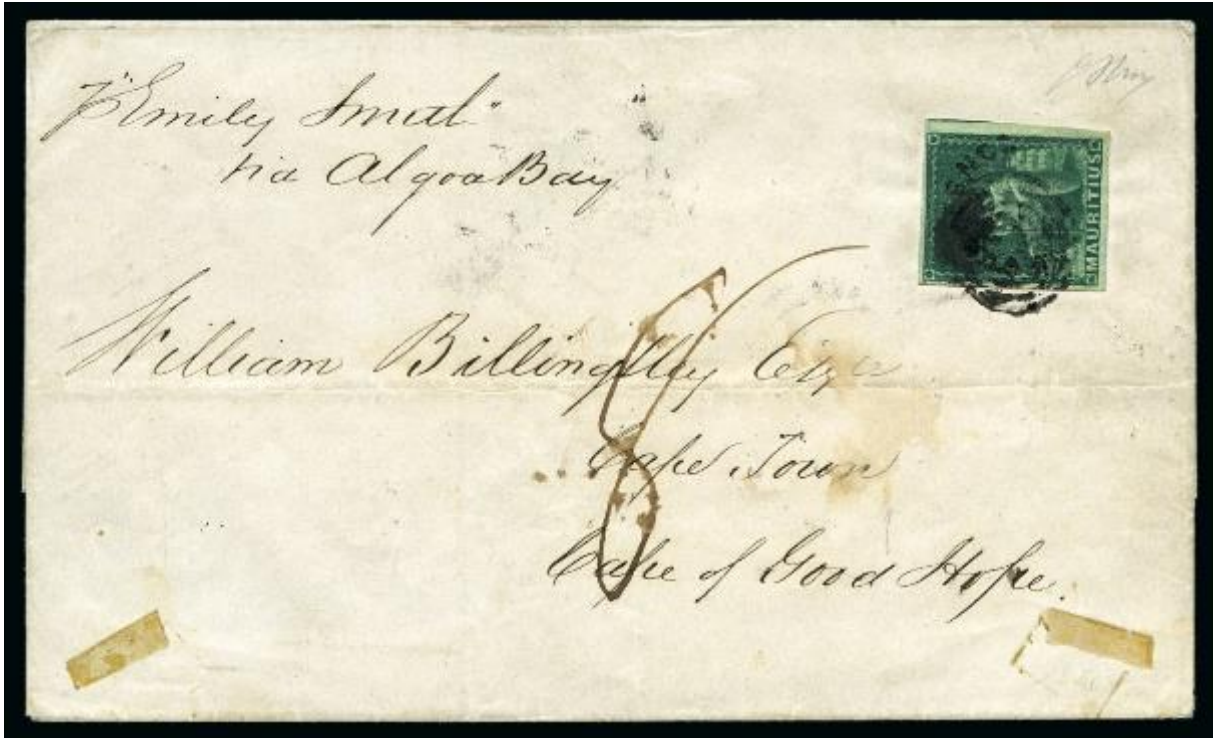 pr "Emily Smith"
via Algoa Bay
MAURITIUS
William Billingsley Esqre
8
Cape Town
Cape of Good Hope.